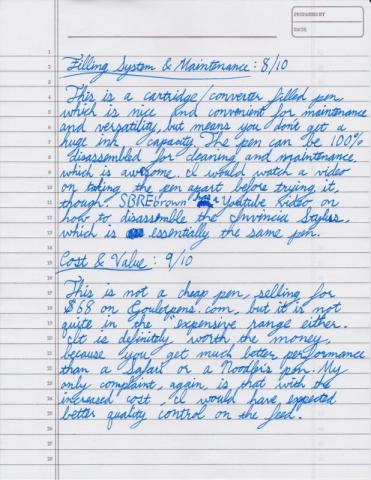 PREPARED BY
DATE
Filling System & Maintenance: 8/10
This is a cartridge/converter filled pen,
which is nice and convenient for maintenance
and versatility, but means you don't get a
huge ink capacity. The pen can be 100%
disassembled for cleaning and maintenance,
which is awesome. I would watch a video
on taking the pen apart before trying it,
though. SBREbrown has a Youtube video on
how to disassemble the Invincia Stylus,
which is essentially the same pen.
Cost & Value: 9/10
This is not a cheap pen, selling for
$68 on Gouletpens.com, but it is not
quite in the "expensive range either.
It is definitly worth the money,
because you get much better performance
than a Safari or a Noodler's pen. My
only complaint, again, is that with the
increased cost, I would have expected
better quality control on the feed.